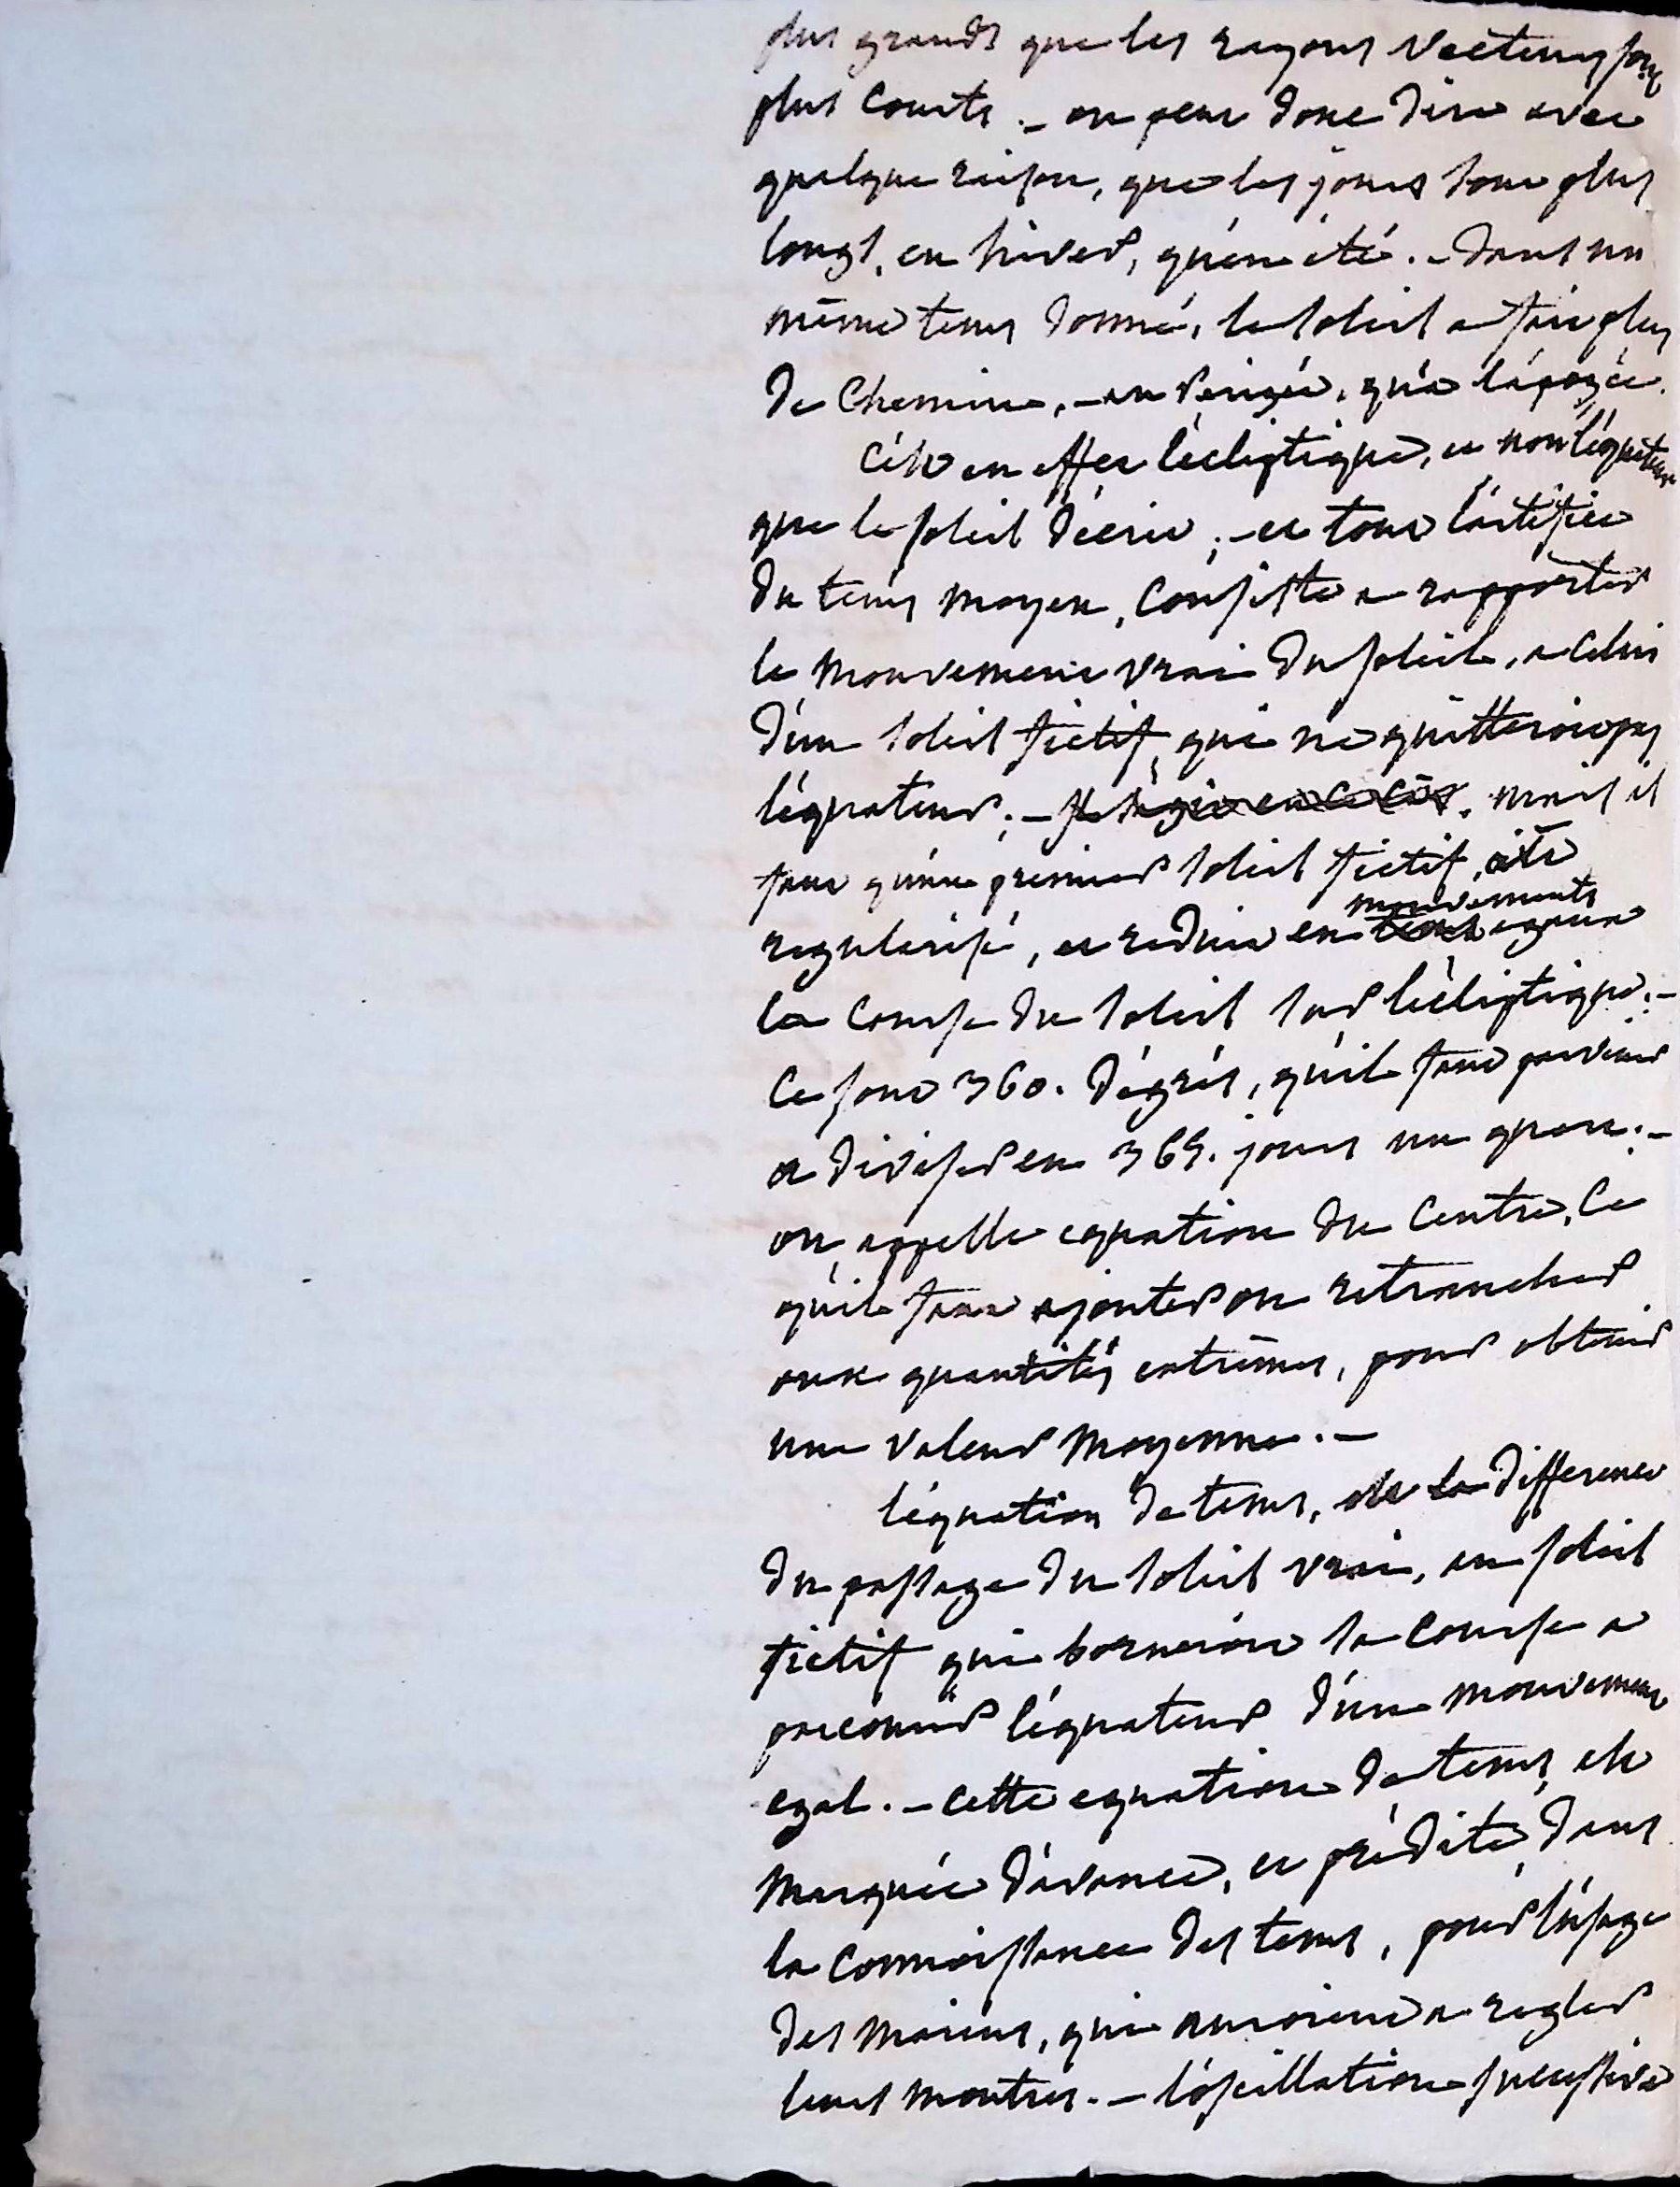 plus grands que les rayons vecteurs sont
plus courts. – on peut donc dire avec
quelque raison, que les jours sont plus
longs, en hiver, qu'en été. – dans un
même tems donné, le soleil a fait plus
de chemin, – au Perigée, qu'à l'apogée.
C'est en effet l'écliptique, et non l'équateur
que le soleil décrit; – et tout l'artifice
du tems moyen, consiste a rapporter
le mouvement vrai du soleil, a celui
d'un soleil fictif, qui ne quitteroit pas
l'équateur; – Il s'agit en ce cas. mais il
faut qu'un premier soleil fictif, ait
mouvements
regularisé, et reduit en tems egaux
la course du soleil sur l'écliptique. –
Ce sont 360. dégrés, qu'il faut parvenir
a diviser en 365. jours un quart. –
on appelle equation du Centre, Ce
qu'il faut ajouter ou retrancher
aux quantités extrêmes, pour obtenir
une valeur moyenne. –
l'équation de tems, est la difference
du passage du soleil vrai, au soleil
fictif qui borneroit sa course a
parcourir l'équateur d'un mouvement
egal. – cette equation de tems, est
marquée d'avance, et prédite, dans
la connoissance des tems, pour l'usage
des marins, qui auroient a regler
leurs montres. – l'oscillation successive